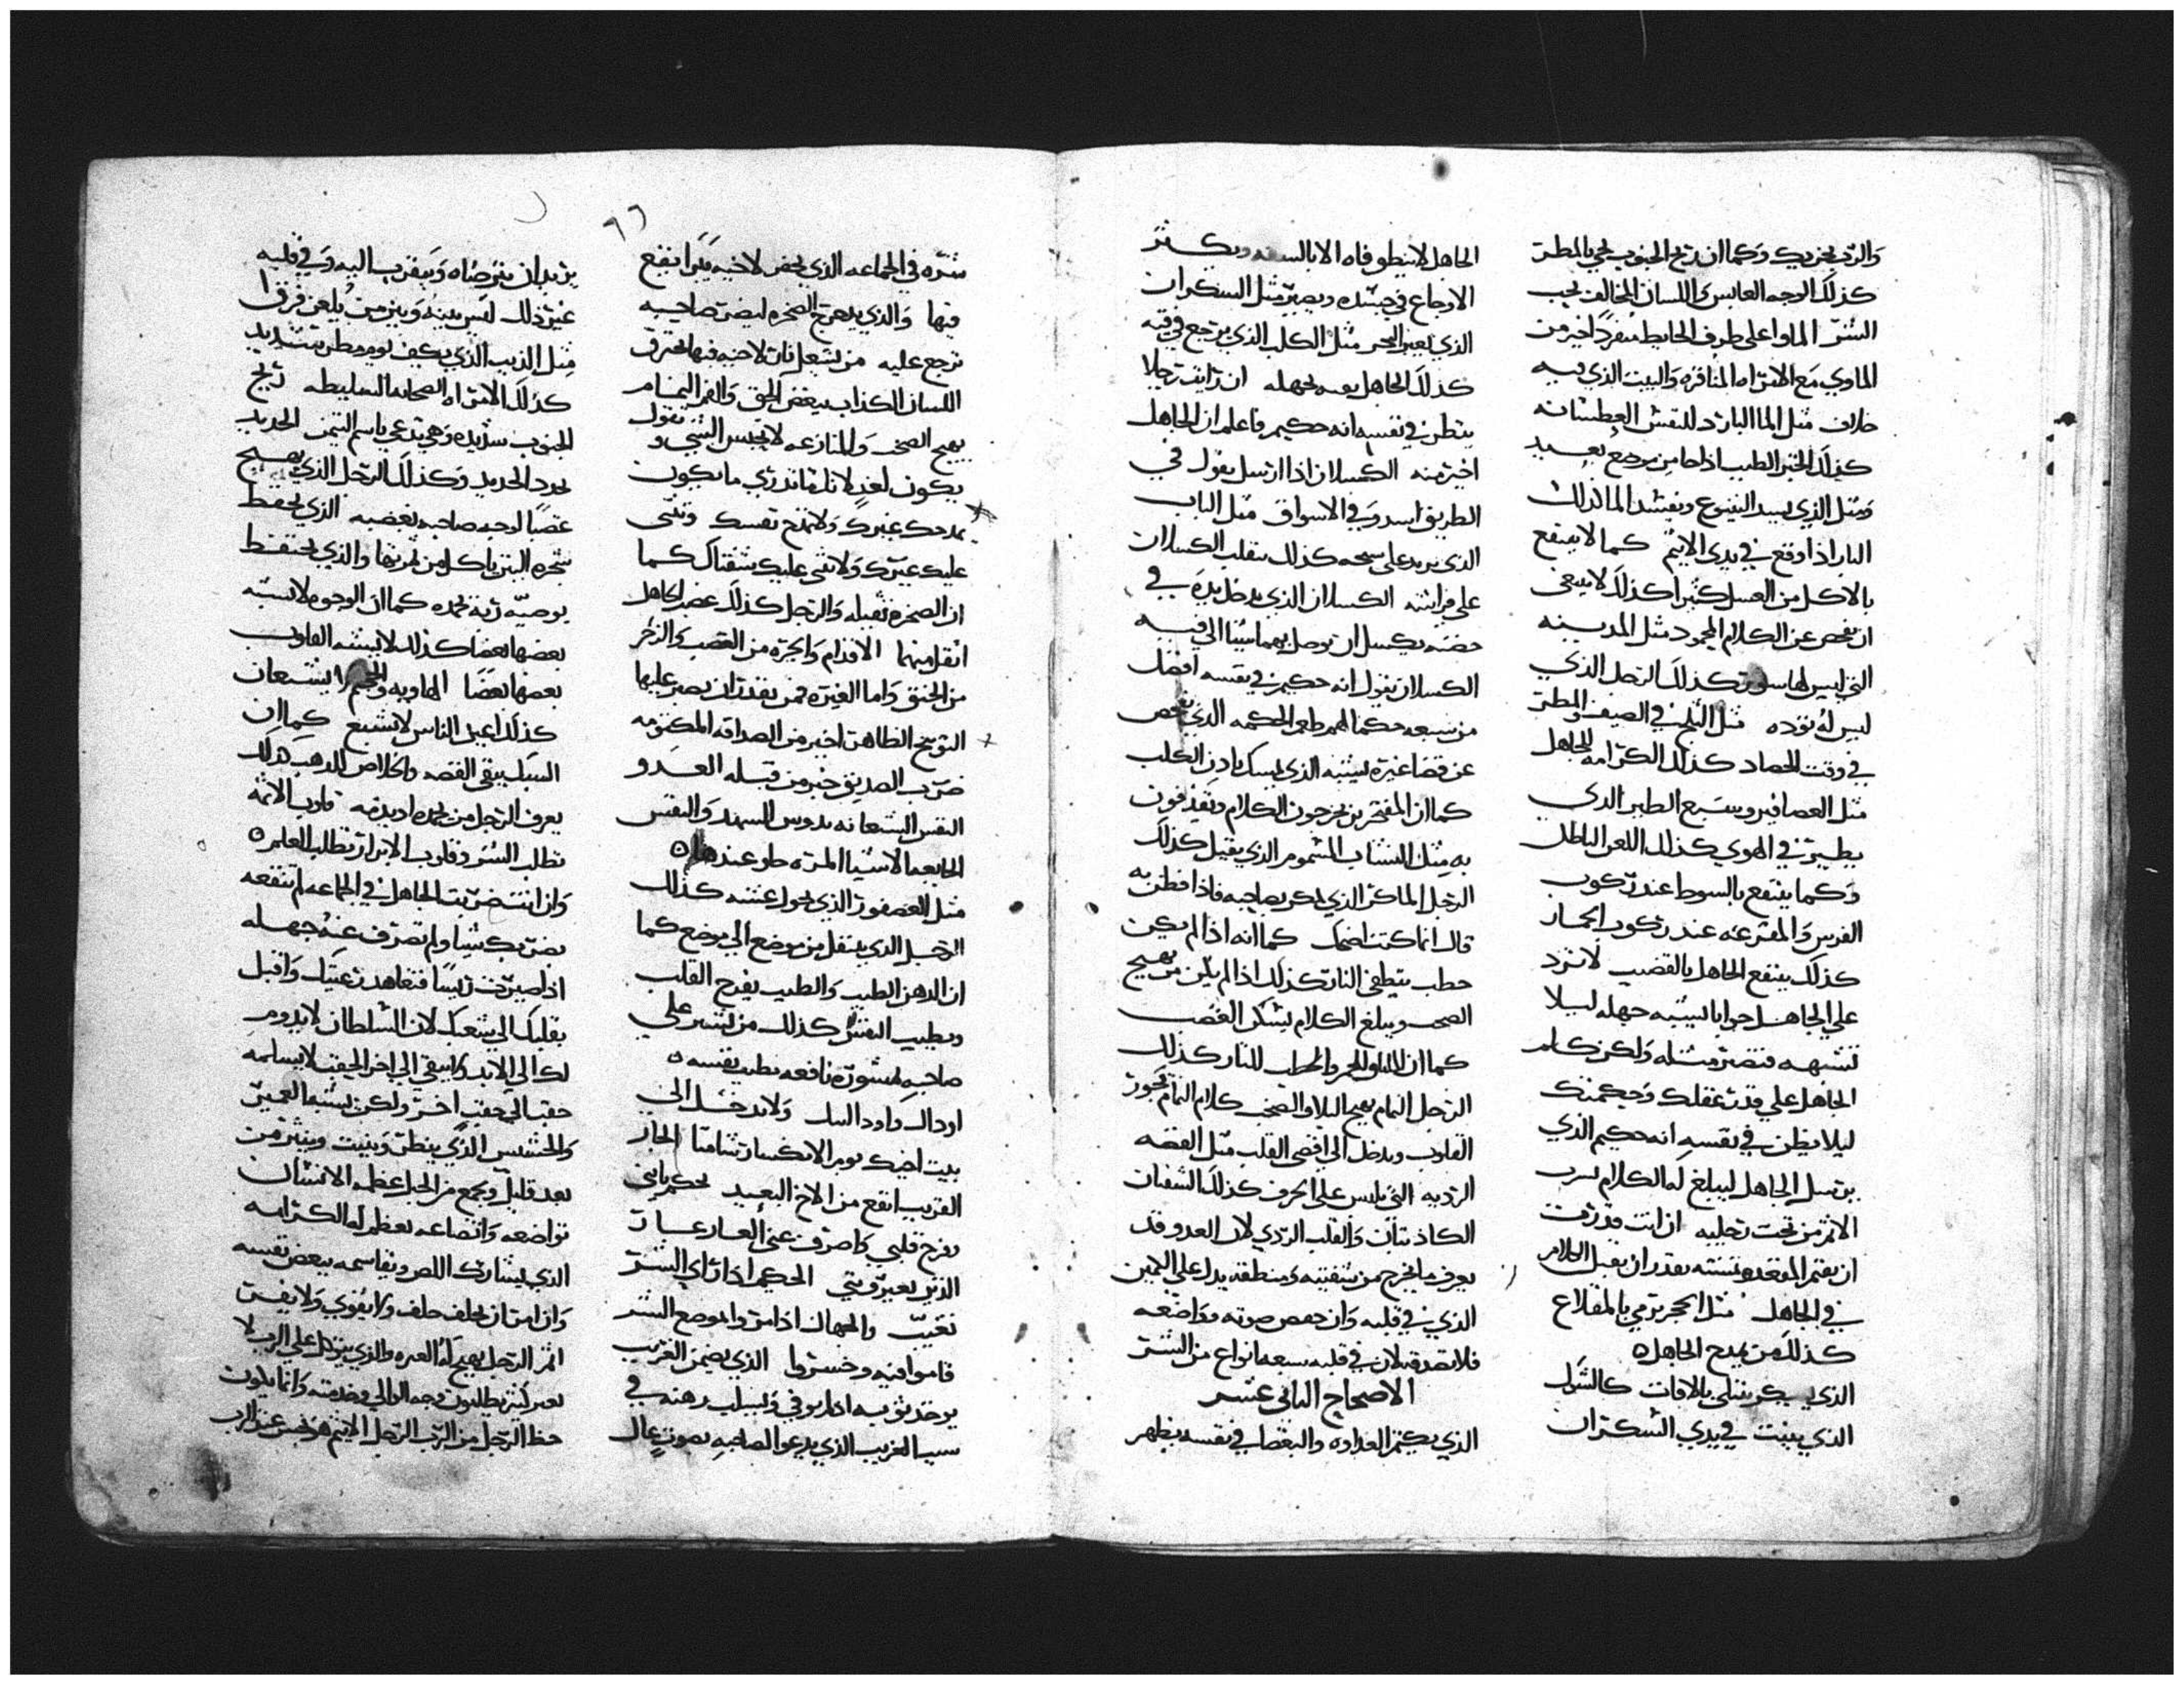 والرب يجزيك وكما ان ريح الجنوب تجي بالمطر
كذلك الوجه العابس واللسان المخالف يجب
الشر الماوا على طرف الحايط منفردًا خير من
الماوي مع الامراه المنافره والبيت الذي فيه
خلاف مثل الما البارد للنفس العطشانه
كذلك الخبر الطيب اذا جا من موضع بعيد
ومثل الذي يسد الينبوع ويفسد الما كذلك
البار اذا وقع في يدي الاثيم كما لا ينتفع
بالاكل من العسل كثيرا كذلك لا ينبغي
ان يفحص عن الكلام المجود مثل المدينه
التي ليس لها سور كذلك الرجل الذي
ليس له توده مثل الثلج في الصيف والمطر
في وقت الحصاد كذلك الكرامه للجاهل
مثل العصافير وسبع الطير الذي
يطير في الهوي كذلك اللعن الباطل
وكما ينتفع بالسوط عند ركوب
الفرس والمقرعه عند ركوب الحمار
كذلك ينتفع الجاهل بالقضيب لا ترد
على الجاهل جوابا يشبه جهله ليلا
تشبهه فتصير مثله ولكن كلم
الجاهل على قدر عقلك وحكمتك
ليلا يظن في نفسه انه حكيم الذي
يرسل الجاهل ليبلغ له الكلام يشرب
الاثم من تحت رجليه ان انت قدرت
ان يقيم المقعد ومشيته يقدر ان يقبل الكلام
في الجاهل مثل الحجر يرمي بالمقلاع
كذلك من يمدح الجاهل
الذي يسكر يبتلى بالافات كالشوك
الذي ينبت في يدي السكران
الجاهل لا ينطق فاه الا بالسفه ويكثر
الاوجاع في جسده ويصير مثل السكران
الذي يعبر البحر مثل الكلب الذي يرجع في قيه
كذلك الجاهل يعود لجهله ان رايت رجلا
ينظر في نفسه انه حكيم فاعلم ان الجاهل
اخير منه الكسلان اذا ارسل يقول في
الطريق اسد وفي الاسواق مثل الباب
الذي يدور على كذلك يتقلب الكسلان
على فراشه الكسلان الذي يدخل يده في
حضنه يكسل ان توصل بهما شيا الي فيه
الكسلان يقول انه حكيم في نفسه افضل
من سبعه حكما الحكمه الذي يفحص
عن قضا غيره يشبه الذي يمسك باذن الكلب
كما ان المفتخرين يخرجون الكلام ويقذفون
به مثل النشاب المسموم الذي يقتل كذلك
الرجل الماكر الذي يمكر بصاحبه فاذا فطن به
قال انما كنت اضحك كما انه اذا لم يكن
حطب ينطفي النار كذلك اذا لم يكن من يهيج
الصخب ويبلغ الكلام يسكن الغضب
كما ان للجمر والحطب للنار كذلك
الرجل النمام يهيج البلا والصخب كلام النمام يجوز
القلوب ويدخل الي اقصى القلب مثل الفضه
الرديه التي تلبس على الخزف كذلك الشفتان
الكاذبتان والقلب الردي لان العدو قد
يعرف ما يخرج من شفتيه ومنطقه يدل على الكمين
الذي في قلبه وان خفض صوته وواضعه
فلا تصدقه لان في قلبه سبعه انواع من الشر
الاصحاح الثاني عشر
الذي يكتم العداوه والبغضا في نفسه يظهر
٩٦
شره في الجماعه الذي يحفر لاخيه بيرا يقع
فيها والذي يدحرج الصخره ليضر صاحبه
ترجع عليه من يشعل نارًا لاخيه فيها يحترق
اللسان الكذاب يبغض الحق والفم النمام
يهيج الصخب والمنازعه لا تحبس الشي وتقول
يكون لغد لانك ما تدري ما يكون
يمدحك غيرك ولا تمدح نفسك وتثني
عليك غيرك ولا تثني عليك شفتاك كما
ان الصخره ثقيله والرمل كذلك غضب الجاهل
اثقل منهما الاقدام والجره من الغضب والزخر
من الحنق واما الغيره فمن يقدر ان يصبر عليها
التوبيخ الظاهر اخير من الصداقه المكتومه
ضرب الصديق خير من قبله العدو
النفس الشبعانه تدوس الشهد والنفس
الجايعه الاشيا المره حلو عندها
مثل العصفور الذي يجول عشه كذلك
الرجل الذي ينتقل من موضع الي موضع كما
ان الدهن الطيب والطيب يفرح القلب
ويطيب النفس كذلك من يشير علي
صاحبه بمشوره نافعه يطيب نفسه
اودالك واود ابيك ولا تدخل الي
بيت اخيك يوم الانكسار شامتا الجار
القريب انفع من الاخ البعيد تحكم يابني
وفرح قلبي واصرف عني العار عار
الذين يعيروني الحكيم اذا راي الشر
تغيب والجهال اذا مروا بموضع الشر
قاموا فيه وخسروا الذي يضمن الغريب
يوخذ ثوبه اذا لم يوفي ويسلب رهنه في
سبب الغريب الذي يدعو الصاحبه بصوت عال
يريد ان يترضاه ويتقرب اليه وفي قلبه
غير ذلك ليس بينه وبين من يلعن فرقا
مثل الذيب الذي يكف يوم مطر شديد
كذلك الامراه الصخابه السليطه ريح
الجنوب شديده وهي تدعي باسم اليمين الحديد
يحد الحديد وكذلك الرجل الذي يهيج
غضبًا لوجه صاحبه بغضبه الذي يحفظ
شجره التين ياكل من ثمرتها والذي يحتفظ
بوصيه ربه يحمده كما ان الوجوه لا تشبه
بعضها بعضًا كذلك لا يشبه القلوب
بعضها بعضًا الهاويه والجحيم لا يشبعان
كذلك اعين الناس لا تشبع كما ان
السبك ينقي الفضه والخلاص الذهب كذلك
يعرف الرجل من يحمده او يذمه قلوب الاثمه
تطلب الشر وقلوب الابرار تطلب العلم
وان انت ضربت الجاهل في الجماعه لم تنفعه
بضربك شيا ولم تصرف عنه جهله
اذا صيرت رييسًا فتعاهد رعيتك واقبل
بقلبك الي شعبك لان السلطان لا يدوم
لك الي الابد ولا يبقي الي اخر الحقب لا يسلمه
حقب الي حقب اخر ولكن يشبه العمر
والحشيش الذي ينظر وينبت وينثر من
بعد قليل ويجمع من الجبل عظمه الانسان
تواضعه واتضاعه يعظم له الكرامه
الذي يشارك اللص ويقاسمه يبغض نفسه
وان امر ان يحلف حلف ولا يقوي ولا يفي
اثم الرجل يهيج له العثره والذي يتوكل علي الرب لا
يعبر كثير يطلبون وجه الوالي وخدمته وانما يكون
حظ الرجل من الرب الرجل الاثيم هو نجس عند الرب